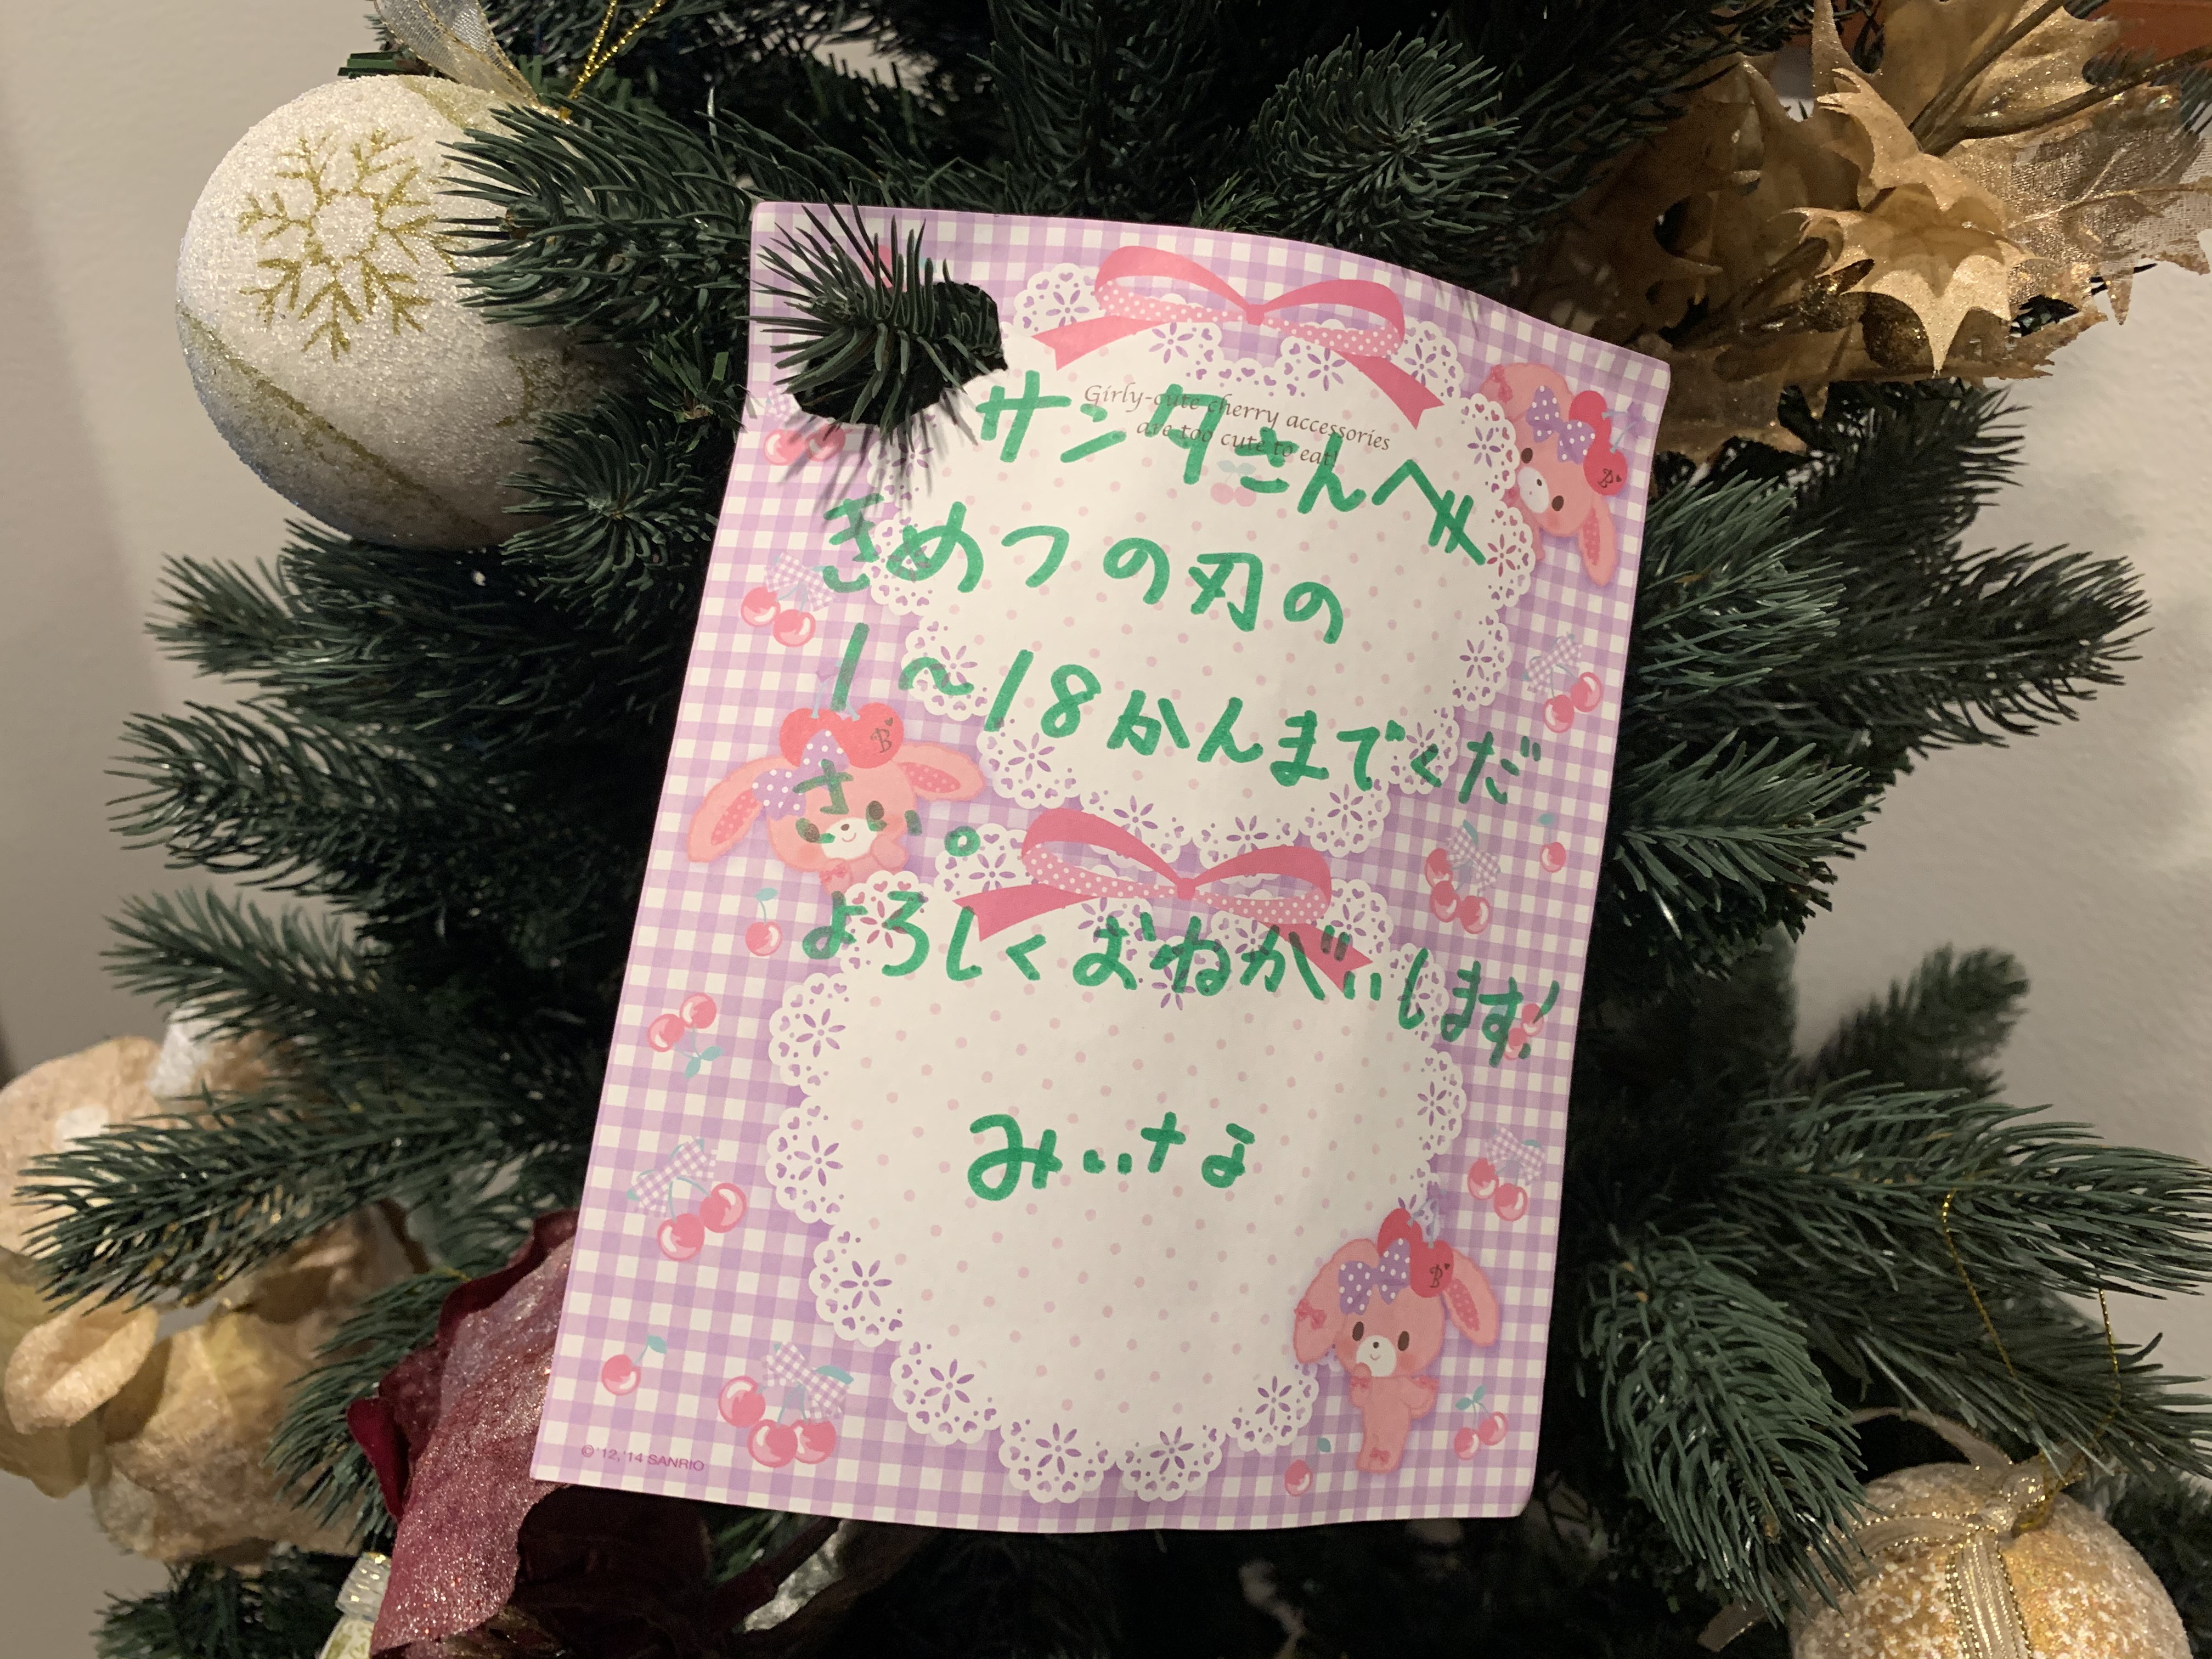 Girly-cute cherry accessories
are too cute to eat!
サンタさんへ
きめつの刃の
1〜18かんまでくだ
さい。
よろしくおねがいします!
みいな
B
B
B
©'12,'14 SANRIO